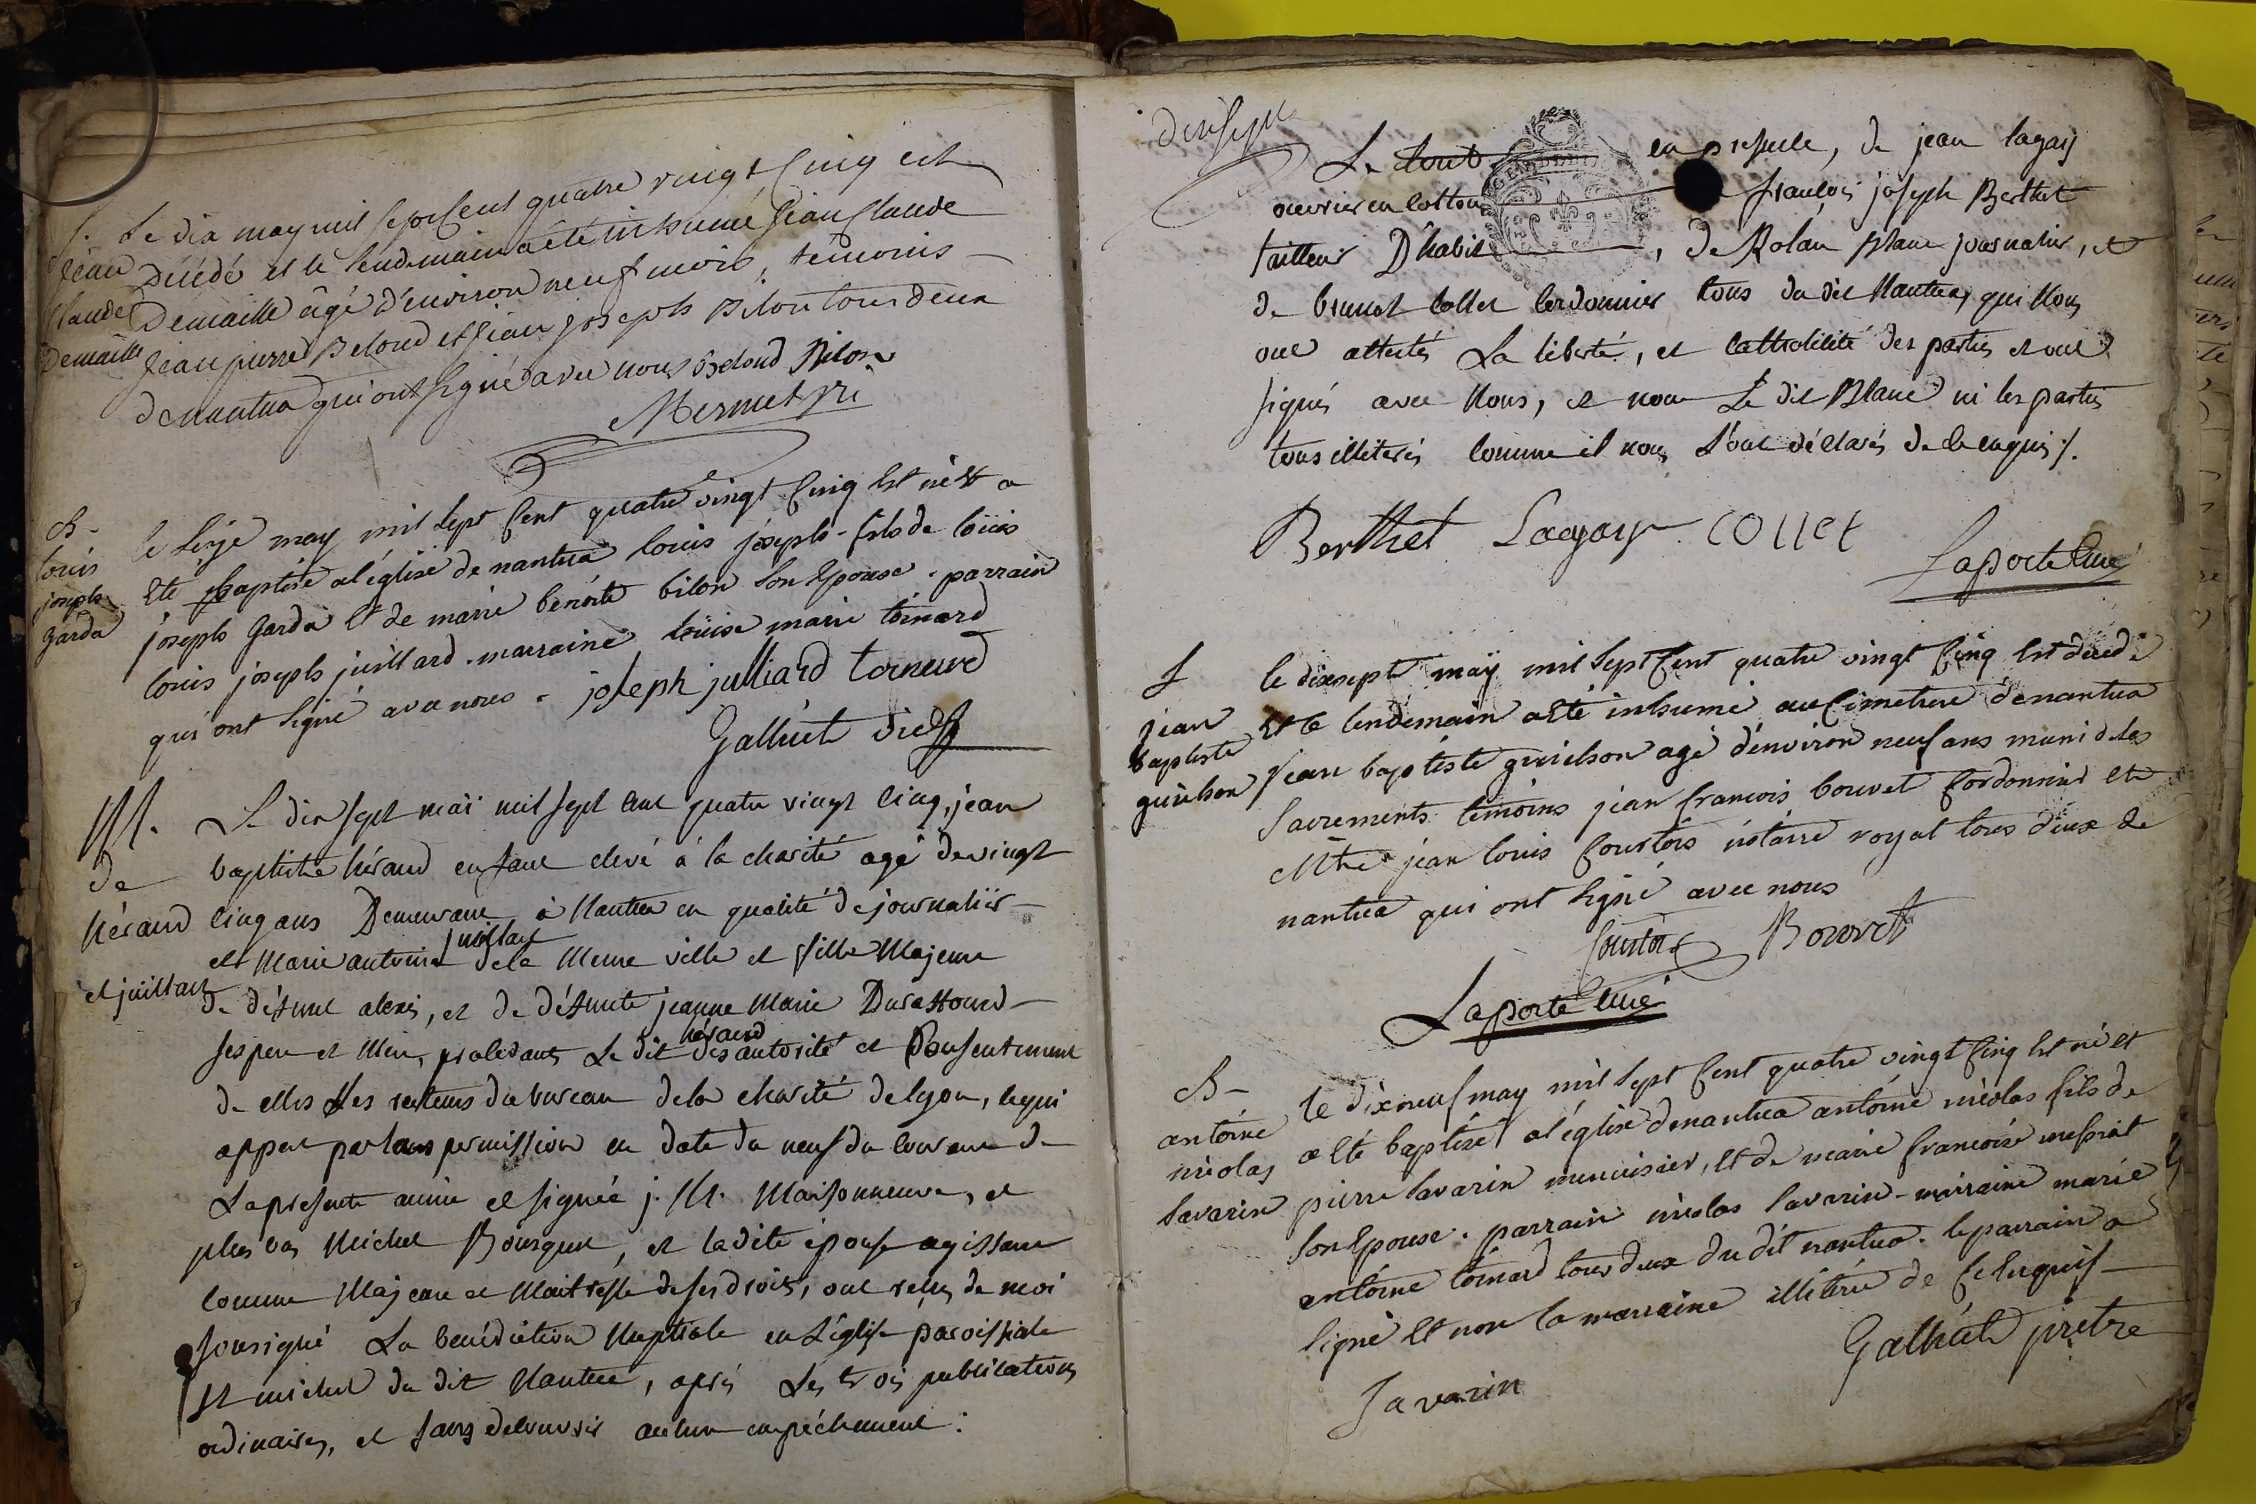 S.
jean
claude
Demaille
Le dix may mil sept cent quatre vingt cinq est
Décédé et le lendemain a été inhumé Jean Claude
Demaille âgé d'environ neuf mois, témoins
Jean pierre Beloud et jean joseph Bilon tous deux
de nantua qui ont signé avec nous Beloud Bilon
Mermet
B-
louis
joseph
Garda
le seize may mil sept cent quatre vingt cinq est né et a
eté baptise al'églisé de nantua louis joseph fils de loüis
joseph Garda et de marie benoite bilon son Epouse. parrain
louis joseph juillard. marraine loüise marie toinard
qui ont signé avec nous. joseph julliard tornard
Galliiet vic
M.
de
héraud
et juillard
Le dix sept maï mil sept cent quatre vingt cinq, jean
baptiste héraud enfant elevé à la charité agé de vingt
cinq ans Demeurant à Nantua en qualité de journalier
juillard
et Marie antoinette de la Meme ville et fille Majeure
de défunt alexis, et de défunte jeanne Marie Durassoud
héraud
ses pere et Mere, procedants Le dit des autorité et Consentement
de Mrs Les recteurs du bureau de la charité de lyon, lequi
appert par leurs permission en date du neuf du courant de
La presente année et signée j. M. Maisonneuve, et
plus bas Michel Bourgeut, et la dite épouse agissant
comme Majeure et Maitresse de ses droits, ont reçus de moi
soussigné La benédiction Nuptiale en L'église paroissiale
St michel du dit Nantua, après Les trois publications
ordinaires, et sans decouvrir aucun empéchement:
dix sept
Le tout en presence, de jean lagay
ouvrier en cotton françois joseph Berthet
tailleur D'habit, de Rolan Blanc journalier, et
de brunot collet cordonnier tous du dit Nantua, qui Nous
ont attestés La liberté, et cattolicité des parties et ont
signés avec Nous, et non Le dit Blanc ni les parties
tous illiterés comme il nous L'ont déclarés de ce enquis ./.
Berthet Lagay collet
Laporte Curé
S
jean
baptiste
guichon
le dixsept maÿ mil sept cent quatre vingt cinq est decedé
et le lendemain a eté inhumé au cimetiere de nantua
jean baptiste guichon agé d'environ neuf ans muni de les
sacrements témoins jean francois bouvet cordonnier et
Mtre jean louis courtois notaire royal tous deux de
nantua qui ont signé avec nous
Courtois Bouvet
Laporte Curé
B-
antoine
nicolas
savarin
le dixneuf may mil sept cent quatre vingt cinq est né et
a eté baptisé al'église de nantua antoine nicolas fils de
pierre savarin menuisier, et de marie francoise
son Epouse. parrain nicolas savarin. marraine marie
antoine toinard tous deux du dit nantua. le parrain a
signé et non la marraine illitérée de ce enquise
Galliiet prêtre
Savarin